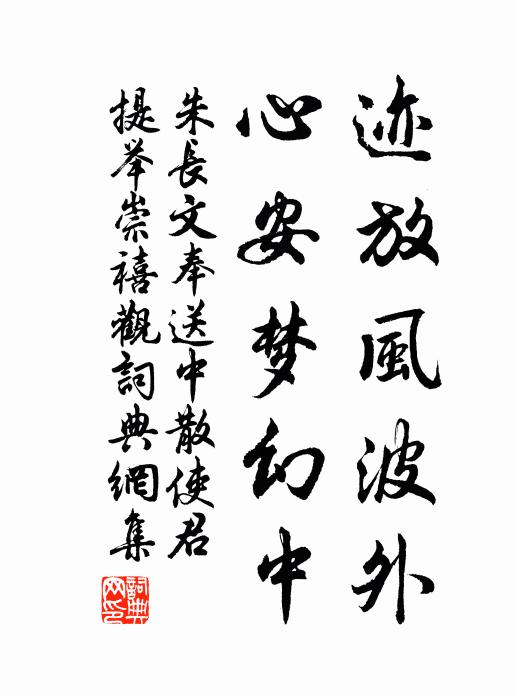 迹放風波外
心安梦幻中
朱長文奉送中散使君
提举崇禧觀詞典網集
詞典網印